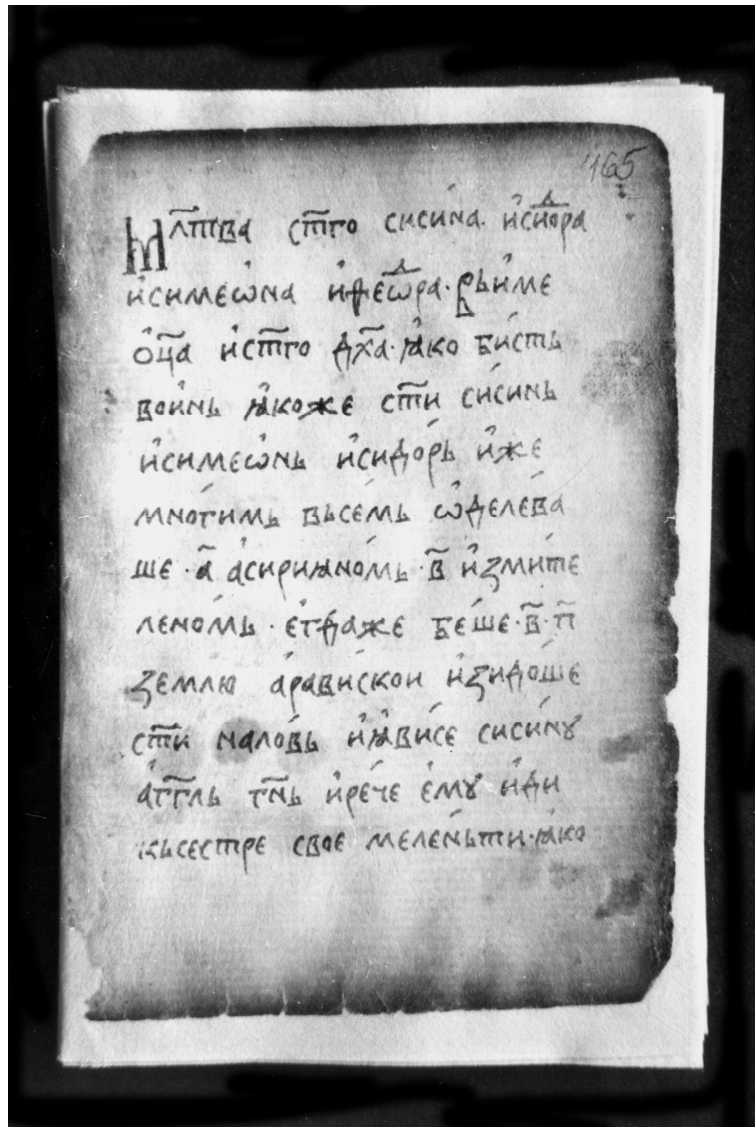 165
Мл҃тва ст҃го сиси́на. и҆сидѡ́ра
и҆симеѡ́на и҆ѳеѡдо́ра · вьи҆ме
ѻ҆ц҃а и҆ст҃го дх҃а · ꙗ҆ко би́сть
вои́нь ꙗ҆коже ст҃и си́синь
и҆симеѡ́нь и҆сидо́рь и҆же
мно́гимь вьсе́мь ѡ҆делева́
ше · а҃ а҆сириꙗно́мь · в҃ и҆змите
лено́мь · є҆гдаже бе́ше · в҃ · п҃
землю а҆рави́скои и҆зидо́ше
ст҃и нало́вь и҆ꙗ҆ви́се сиси́нꙋ
а҆гг҃ль гн҃ь и҆ре́че є҆мꙋ и҆ди
кьсестре свое меле́ньти · ꙗ҆ко